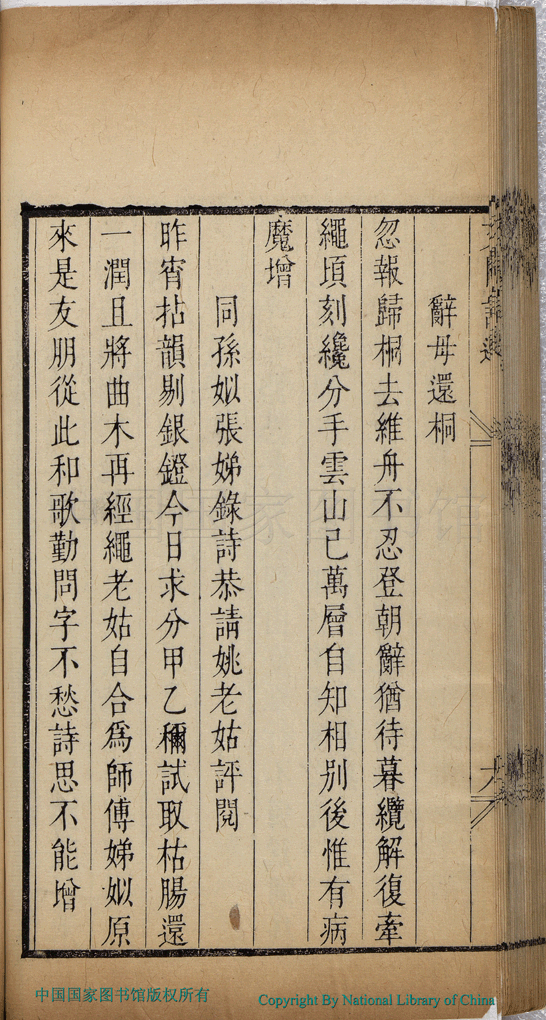 辭母還桐
忽報歸桐去維舟不忍登朝辭猶待暮纜解復牽
繩頃刻纔分手雲山已萬層自知相別後惟有病
魔增
同孫姒張娣錄詩恭請姚老姑評閱
昨宵拈韻剔銀鐙今日求分甲乙稱試取枯腸還
一潤且將曲木再經繩老姑自合爲師傅娣姒原
來是友朋從此和歌勤問字不愁詩思不能增
中国国家图书馆版权所有
Copyright By National Library of China